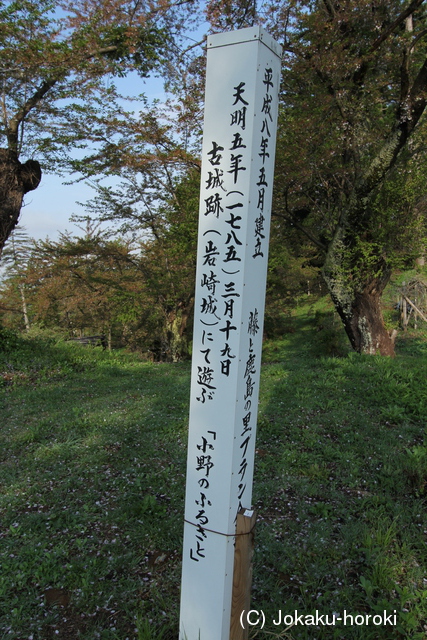 天明五年(一七八五)三月十九日
古城跡(岩崎城)にて遊ぶ 「小野のふるさと」
平成八年五月建立 藤と鹿島の里プラン
(C) Jokaku-horoki